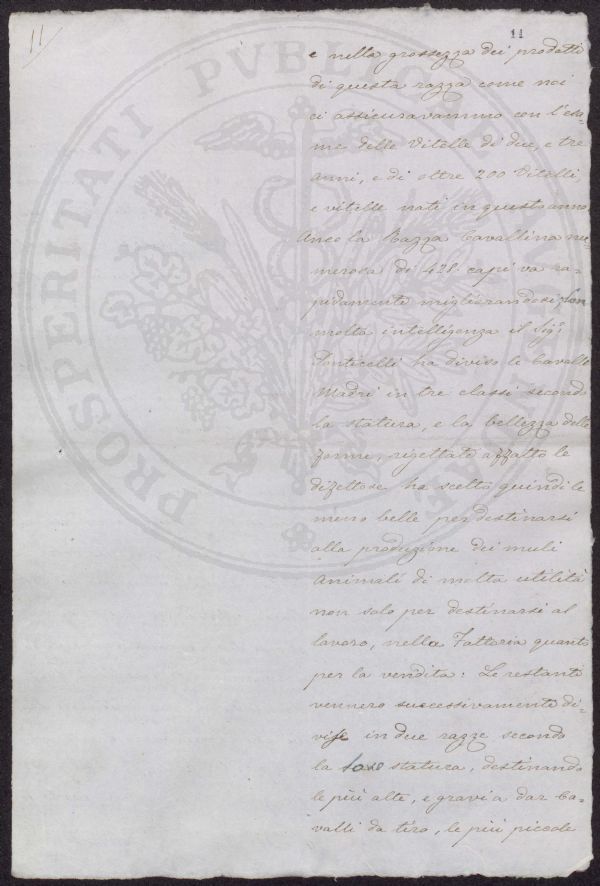 11
11
e nella grossezza dei prodotti
di questa razza come noi
ci assicuravammo con l'esa=
me delle Vitelle di due, e tre
anni, e di oltre 200 Vitelli,
e vitelle nati in quest'anno.
Anco la Razza Cavallina nu=
merosa di 428 capi va ra=
pidamente migliorandosi, Con
molta intelligenza il Sigr
Ponticelli ha diviso le Cavalle
Madri in tre classi secondo
la statura, e la bellezza delle
forme, rigettate affatto le
difettose ha scelto quindi le
meno belle per destinarsi
alla produzione dei muli
Animali di molta utilità
non solo per destinarsi al
lavoro, nella Fattoria quanto
per la vendita: Le restanti
vennero successivamente di=
vise in due razze secondo
la loro statura, destinando
le più alte, e gravi a dar Ca=
valli da tiro, le più piccole
PROSPERITATI PVBLICAE